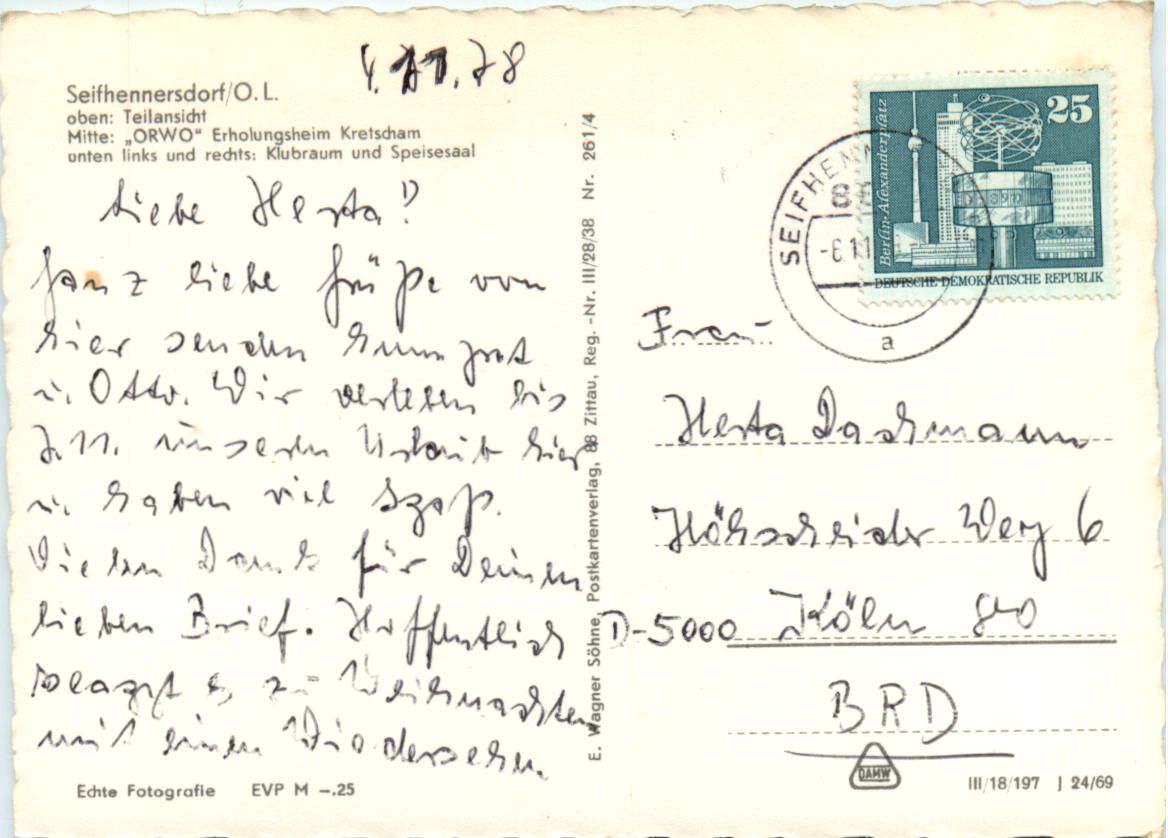 4.11.78
Seifhennersdorf/O. L.
oben: Teilansicht
Mitte: „ORWO" Erholungsheim Kretscham
unten links und rechts: Klubraum und Speisesaal
Liebe Herta!
Ganz liebe Grüße von
hier senden
u. Otto. Wir verleben bis
7.11. unseren Urlaub hier
u. haben viel Spaß.
Vielen Dank für Deinen
lieben Brief. Hoffentlich
klappt es zu Weihnachten
mit einem Wiedersehen.
Echte Fotografie EVP M –.25
E. Wagner Söhne, Postkartenverlag, 88 Zittau, Reg. -Nr. III/28/38 Nr. 261/4
Berlin-Alexanderplatz
25
DEUTSCHE DEMOKRATISCHE REPUBLIK
SEIFHENN
88
-6.11
a
Frau
Herta Dachmann
Höhscheider Weg 6
D-5000 Köln 80
BRD
DAMW
III/18/197 J 24/69